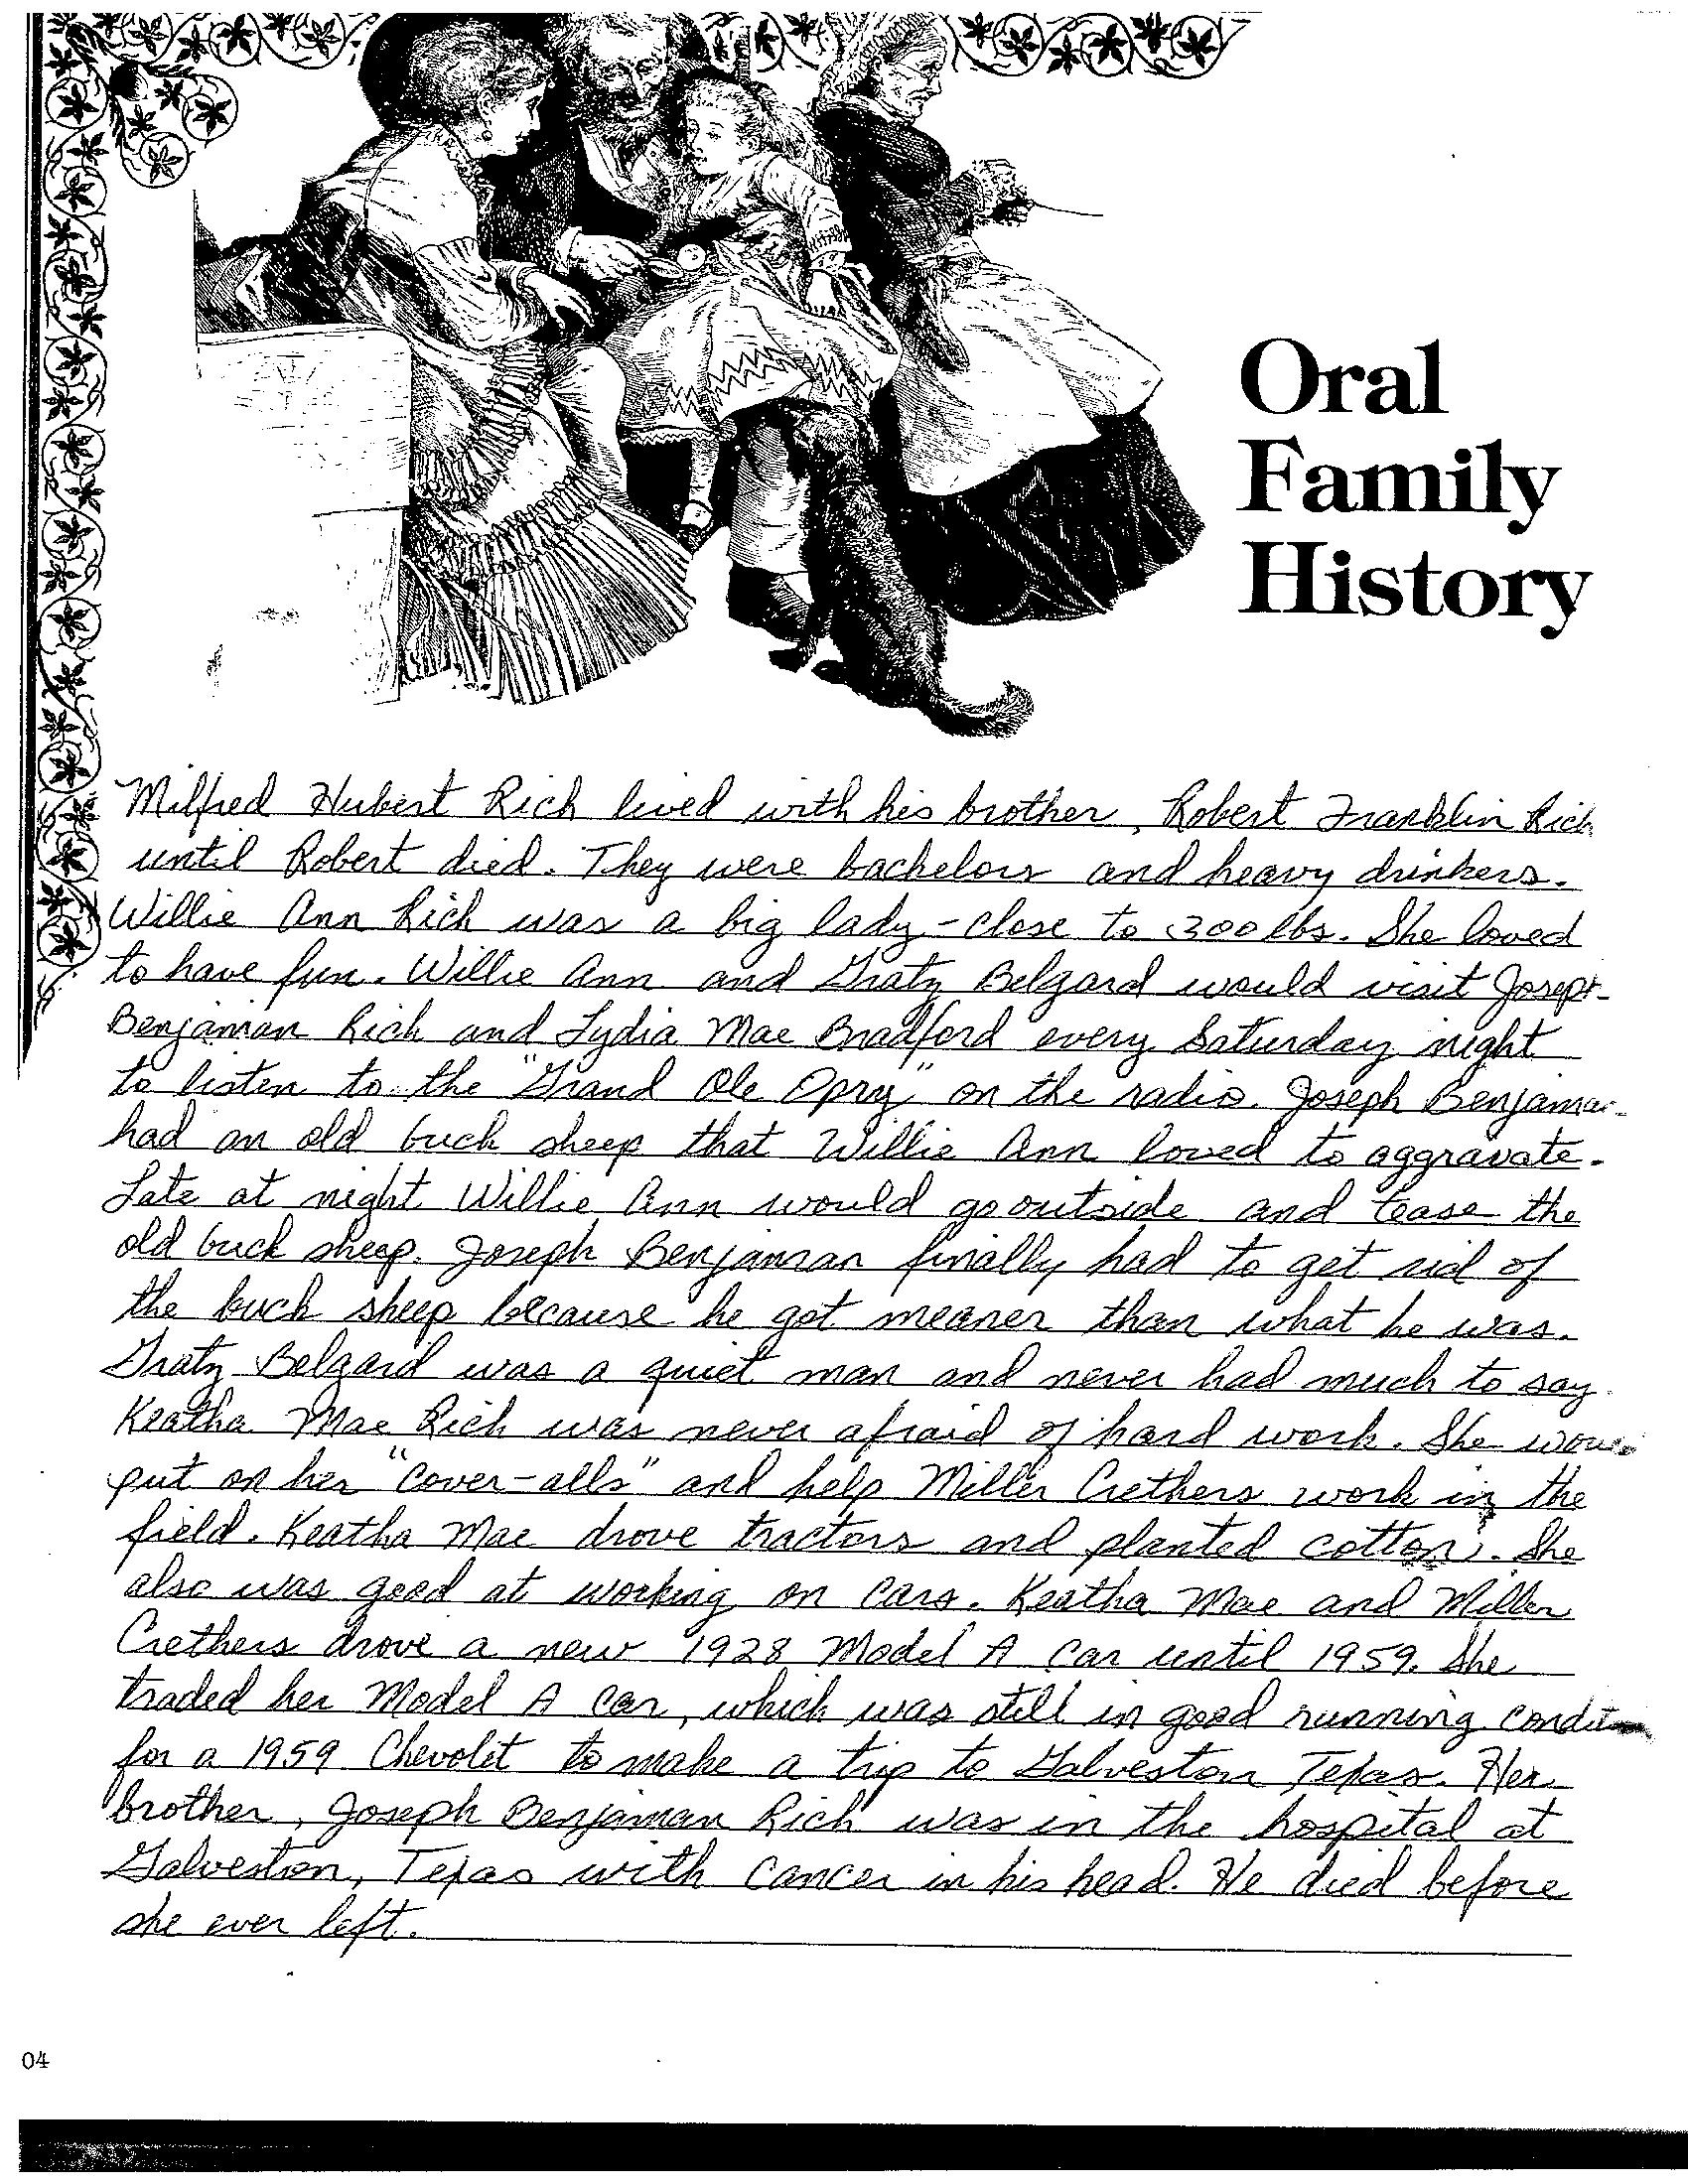 Oral
Family
History
Milfred Hubert Rich lived with his brother, Robert Franklin Rich
until Robert died. They were bachelors and heavy drinkers.
Willie Ann Rich was a big lady - close to 300 lbs. She loved
to have fun. Willie Ann and Gratz Belgard would visit Joseph
Benjaman Rich and Lydia Mae Bradford every Saturday night
to listen to the "Grand Ole Opry" on the radio. Joseph Benjaman
had an old buck sheep that Willie Ann loved to aggravate.
Late at night Willie Ann would go outside and tease the
old buck sheep. Joseph Benjaman finally had to get rid of
the buck sheep because he got meaner than what he was.
Gratz Belgard was a quiet man and never had much to say.
Keatha Mae Rich was never afraid of hard work. She would
put on her "cover-alls" and help Miller Crethers work in the
field. Keatha Mae drove tractors and planted cotton. She
also was good at working on cars. Keatha Mae and Miller
Crethers drove a new 1928 Model A car until 1959. She
traded her Model A car, which was still in good running condit
for a 1959 Chevolet to make a trip to Galveston Texas. Her
brother, Joseph Benjaman Rich was in the hospital at
Galveston, Texas with cancer in his head. He died before
she ever left.
04